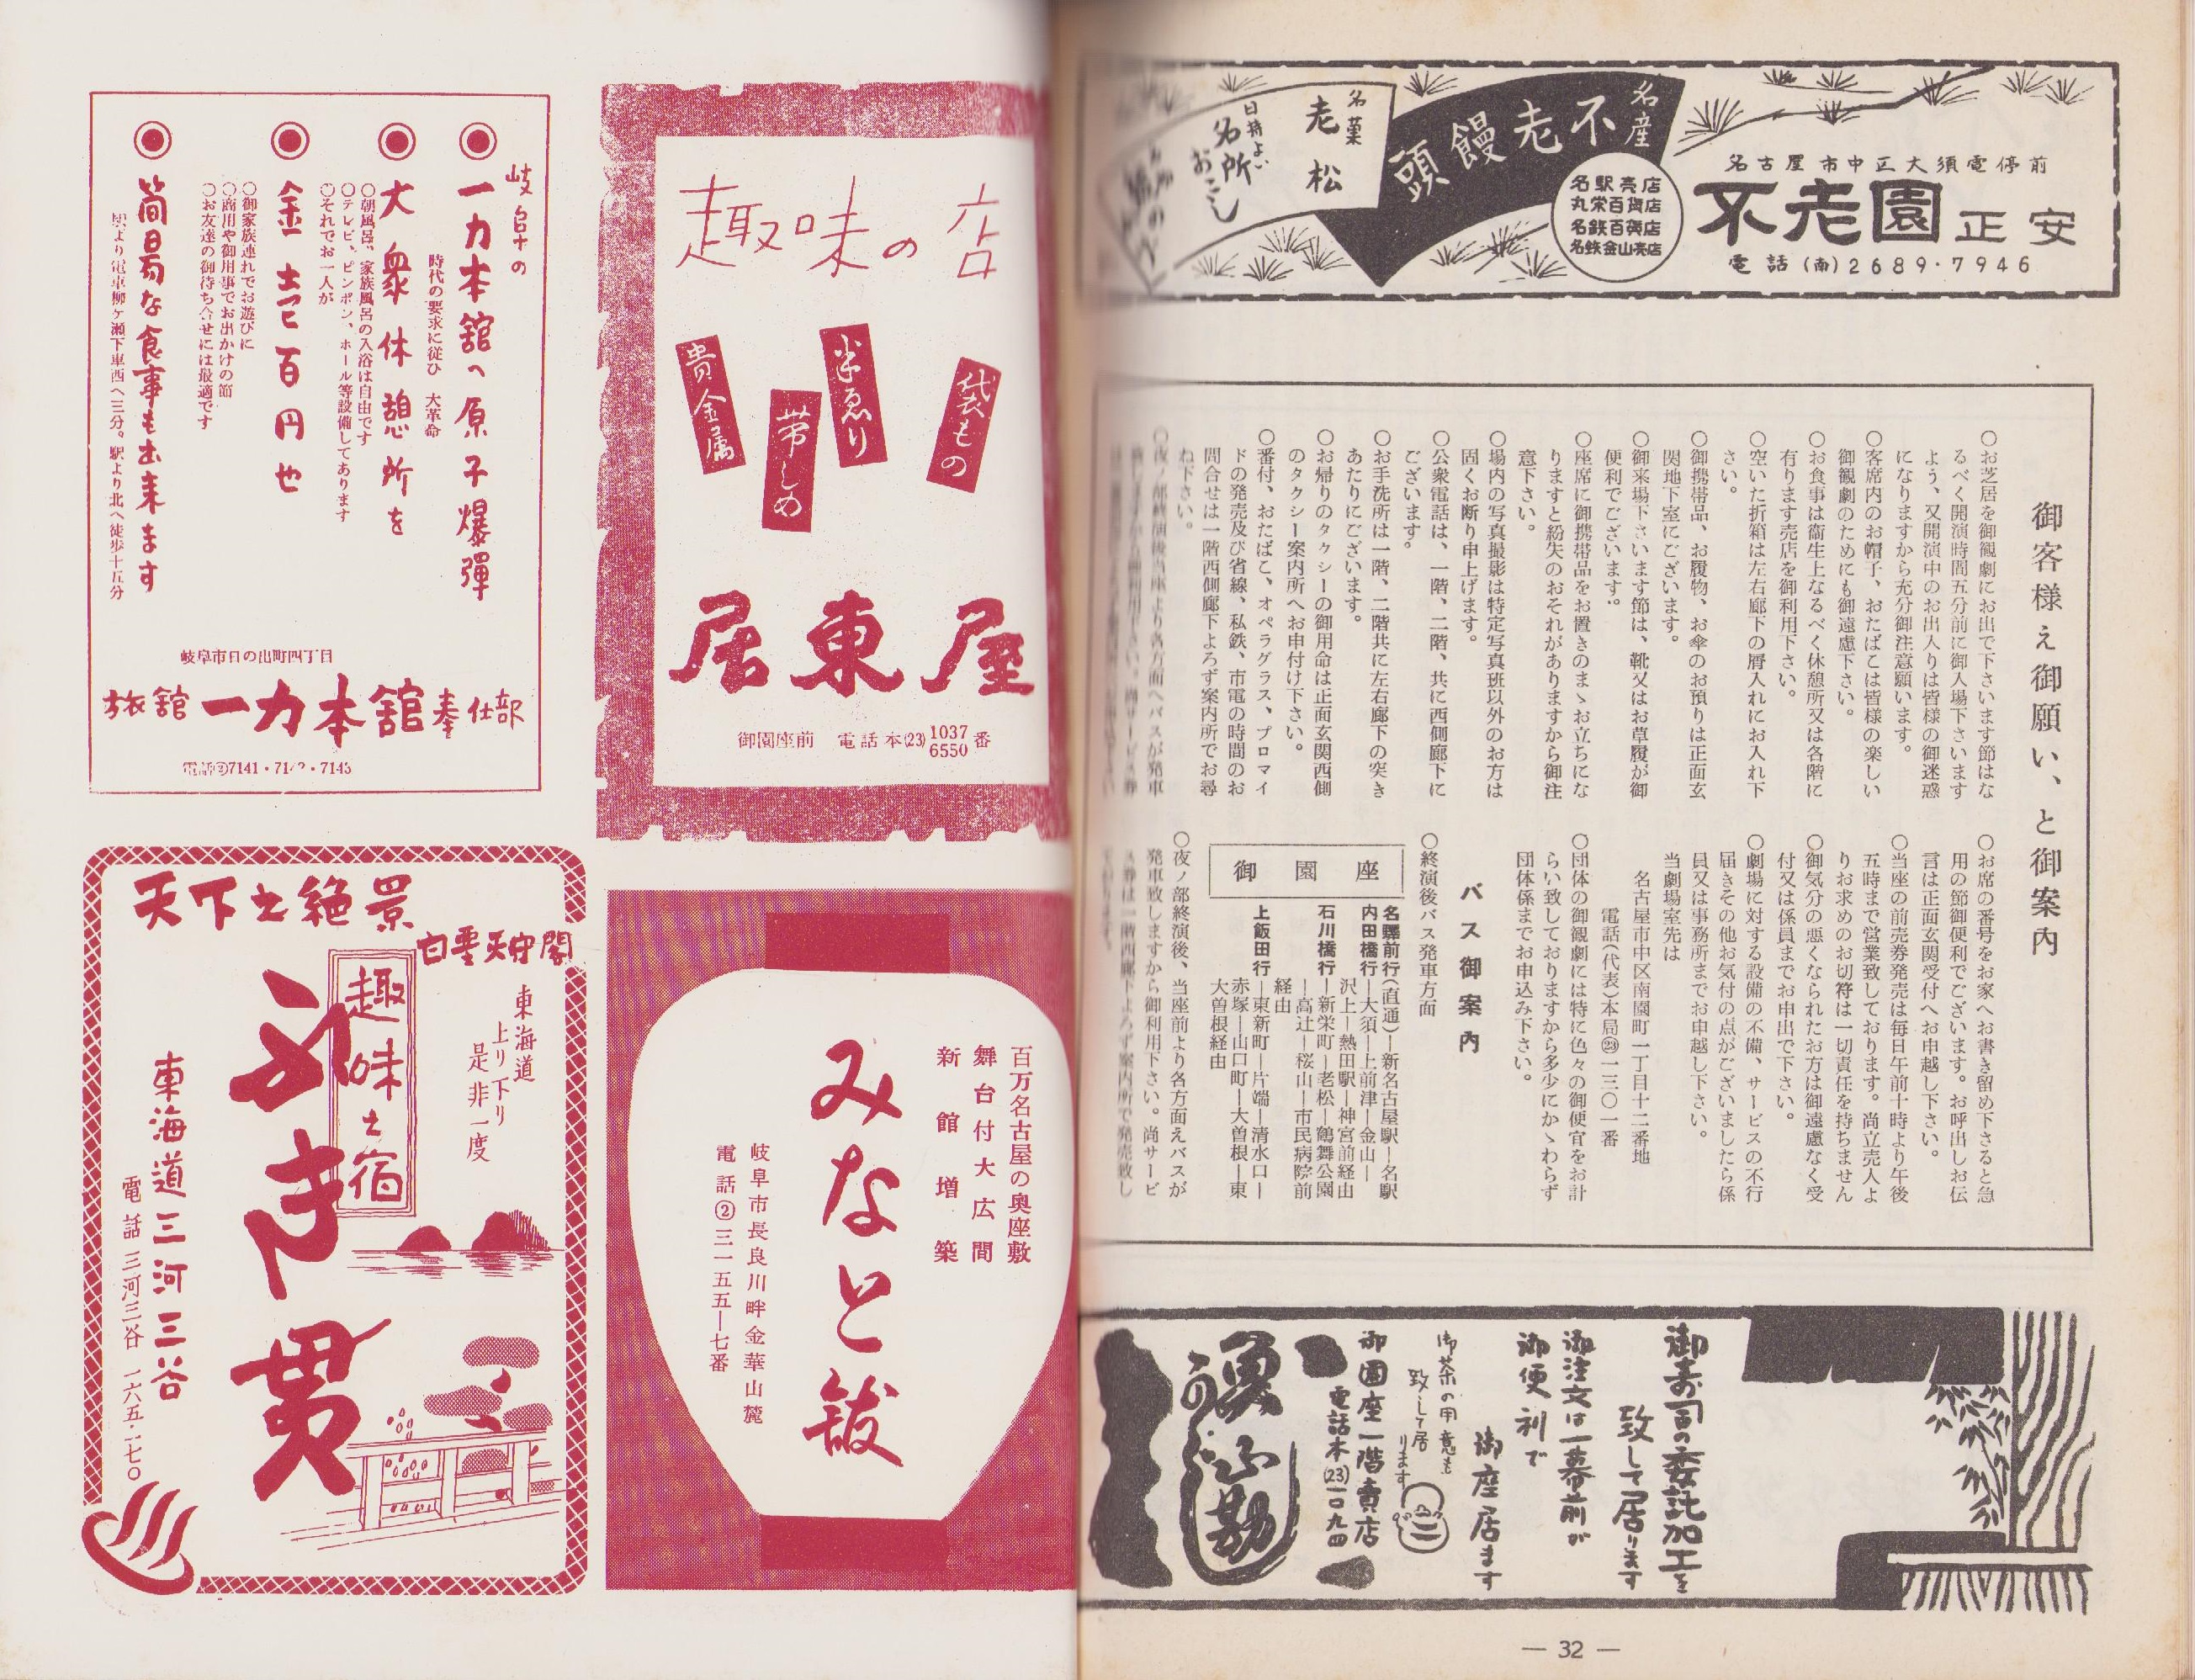 名産
不老饅頭
名菓
老松
日持よい
名所
おこし
名古屋市中区大須電停前
不老園正安
電話(南)2689・7946
名駅売店
丸栄百貨店
名鉄百貨店
名鉄金山売店
御客様え御願い、と御案内
○お芝居を御観劇にお出で下さいます節はな
るべく開演時間五分前に御入場下さいます
よう、又開演中のお出入りは皆様の御迷惑
になりますから充分御注意願います。
○客席内のお帽子、おたばこは皆様の楽しい
御観劇のためにも御遠慮下さい。
○お食事は衛生上なるべく休憩所又は各階に
有ります売店を御利用下さい。
○空いた折箱は左右廊下の屑入れにお入れ下
さい。
○御携帯品、お履物、お傘のお預りは正面玄
関地下室にございます。
○御来場下さいます節は、靴又はお草履が御
便利でございます。
○座席に御携帯品をお置きのまゝお立ちにな
りますと紛失のおそれがありますから御注
意下さい。
○場内の写真撮影は特定写真班以外のお方は
固くお断り申上げます。
○公衆電話は、一階、二階、共に西側廊下に
ございます。
○お手洗所は一階、二階共に左右廊下の突き
あたりにございます。
○お帰りのタクシーの御用命は正面玄関西側
のタクシー案内所へお申付け下さい。
○番付、おたばこ、オペラグラス、プロマイ
ドの発売及び省線、私鉄、市電の時間のお
問合せは一階西側廊下よろず案内所でお尋
ね下さい。
○夜ノ部終演後当座より各方面へバスが発車
○お席の番号をお家へお書き留め下さると急
用の節御便利でございます。お呼出しお伝
言は正面玄関受付へお申越し下さい。
○当座の前売券発売は毎日午前十時より午後
五時まで営業致しております。尚立売人よ
りお求めのお切符は一切責任を持ちません
○御気分の悪くなられたお方は御遠慮なく受
付又は係員までお申出で下さい。
○劇場に対する設備の不備、サービスの不行
届きその他お気付の点がございましたら係
員又は事務所までお申越し下さい。
当劇場室先は
名古屋市中区南園町一丁目十二番地
電話(代表)本局㉓一三〇一番
○団体の御観劇には特に色々の御便宜をお計
らい致しておりますから多少にかゝわらず
団体係までお申込み下さい。
バス御案内
○終演後バス発車方面
御園座
名驛前行(直通)―新名古屋駅―名駅
内田橋行―大須―上前津―金山―
沢上―熱田駅―神宮前経由
石川橋行―新栄町―老松―鶴舞公園
―高辻―桜山―市民病院前
経由
上飯田行―東新町―片端―清水口―
赤塚―山口町―大曽根―東
大曽根経由
○夜ノ部終演後、当座前より各方面えバスが
発車致しますから御利用下さい。尚サービ
ス券は一階西廊下よろず案内所で発売致し
御寿司の委託加工を
致して居ります
御注文は一幕前が
御便利で
御座居ます
御茶の用意も
致して居
ります
御園座一階賣店
電話本(23)一〇九四
― 32 ―
趣味の店
袋もの
半ゑり
帯しめ
貴金属
居東屋
御園座前 電話本(23)1037 6550番
岐阜の
一力本舘へ原子爆彈
時代の要求に従ひ 大革命
大衆休憩所を
○朝風呂、家族風呂の入浴は自由です
○テレビ、ピンポン、ホール等設備してあります
○それでお一人が
金壱百円也
○御家族連れでお遊びに
○商用や御用事でお出かけの節
○お友達の御待ち合せには最適です
簡易な食事も出来ます
駅より電車柳ヶ瀬下車西へ三分。駅より北へ徒歩十五分
岐阜市日の出町四丁目
旅舘 一力本舘奉仕部
電話②7141・7142・7143
百万名古屋の奥座敷
舞台付大広間
新館増築
みなと舘
岐阜市長良川畔金華山麓
電話②三一五五―七番
天下之絶景
白雲天守閣
趣味之宿
東海道
上り下り
是非一度
ふき貫
東海道三河三谷
電話三河三谷 一六五・一七〇